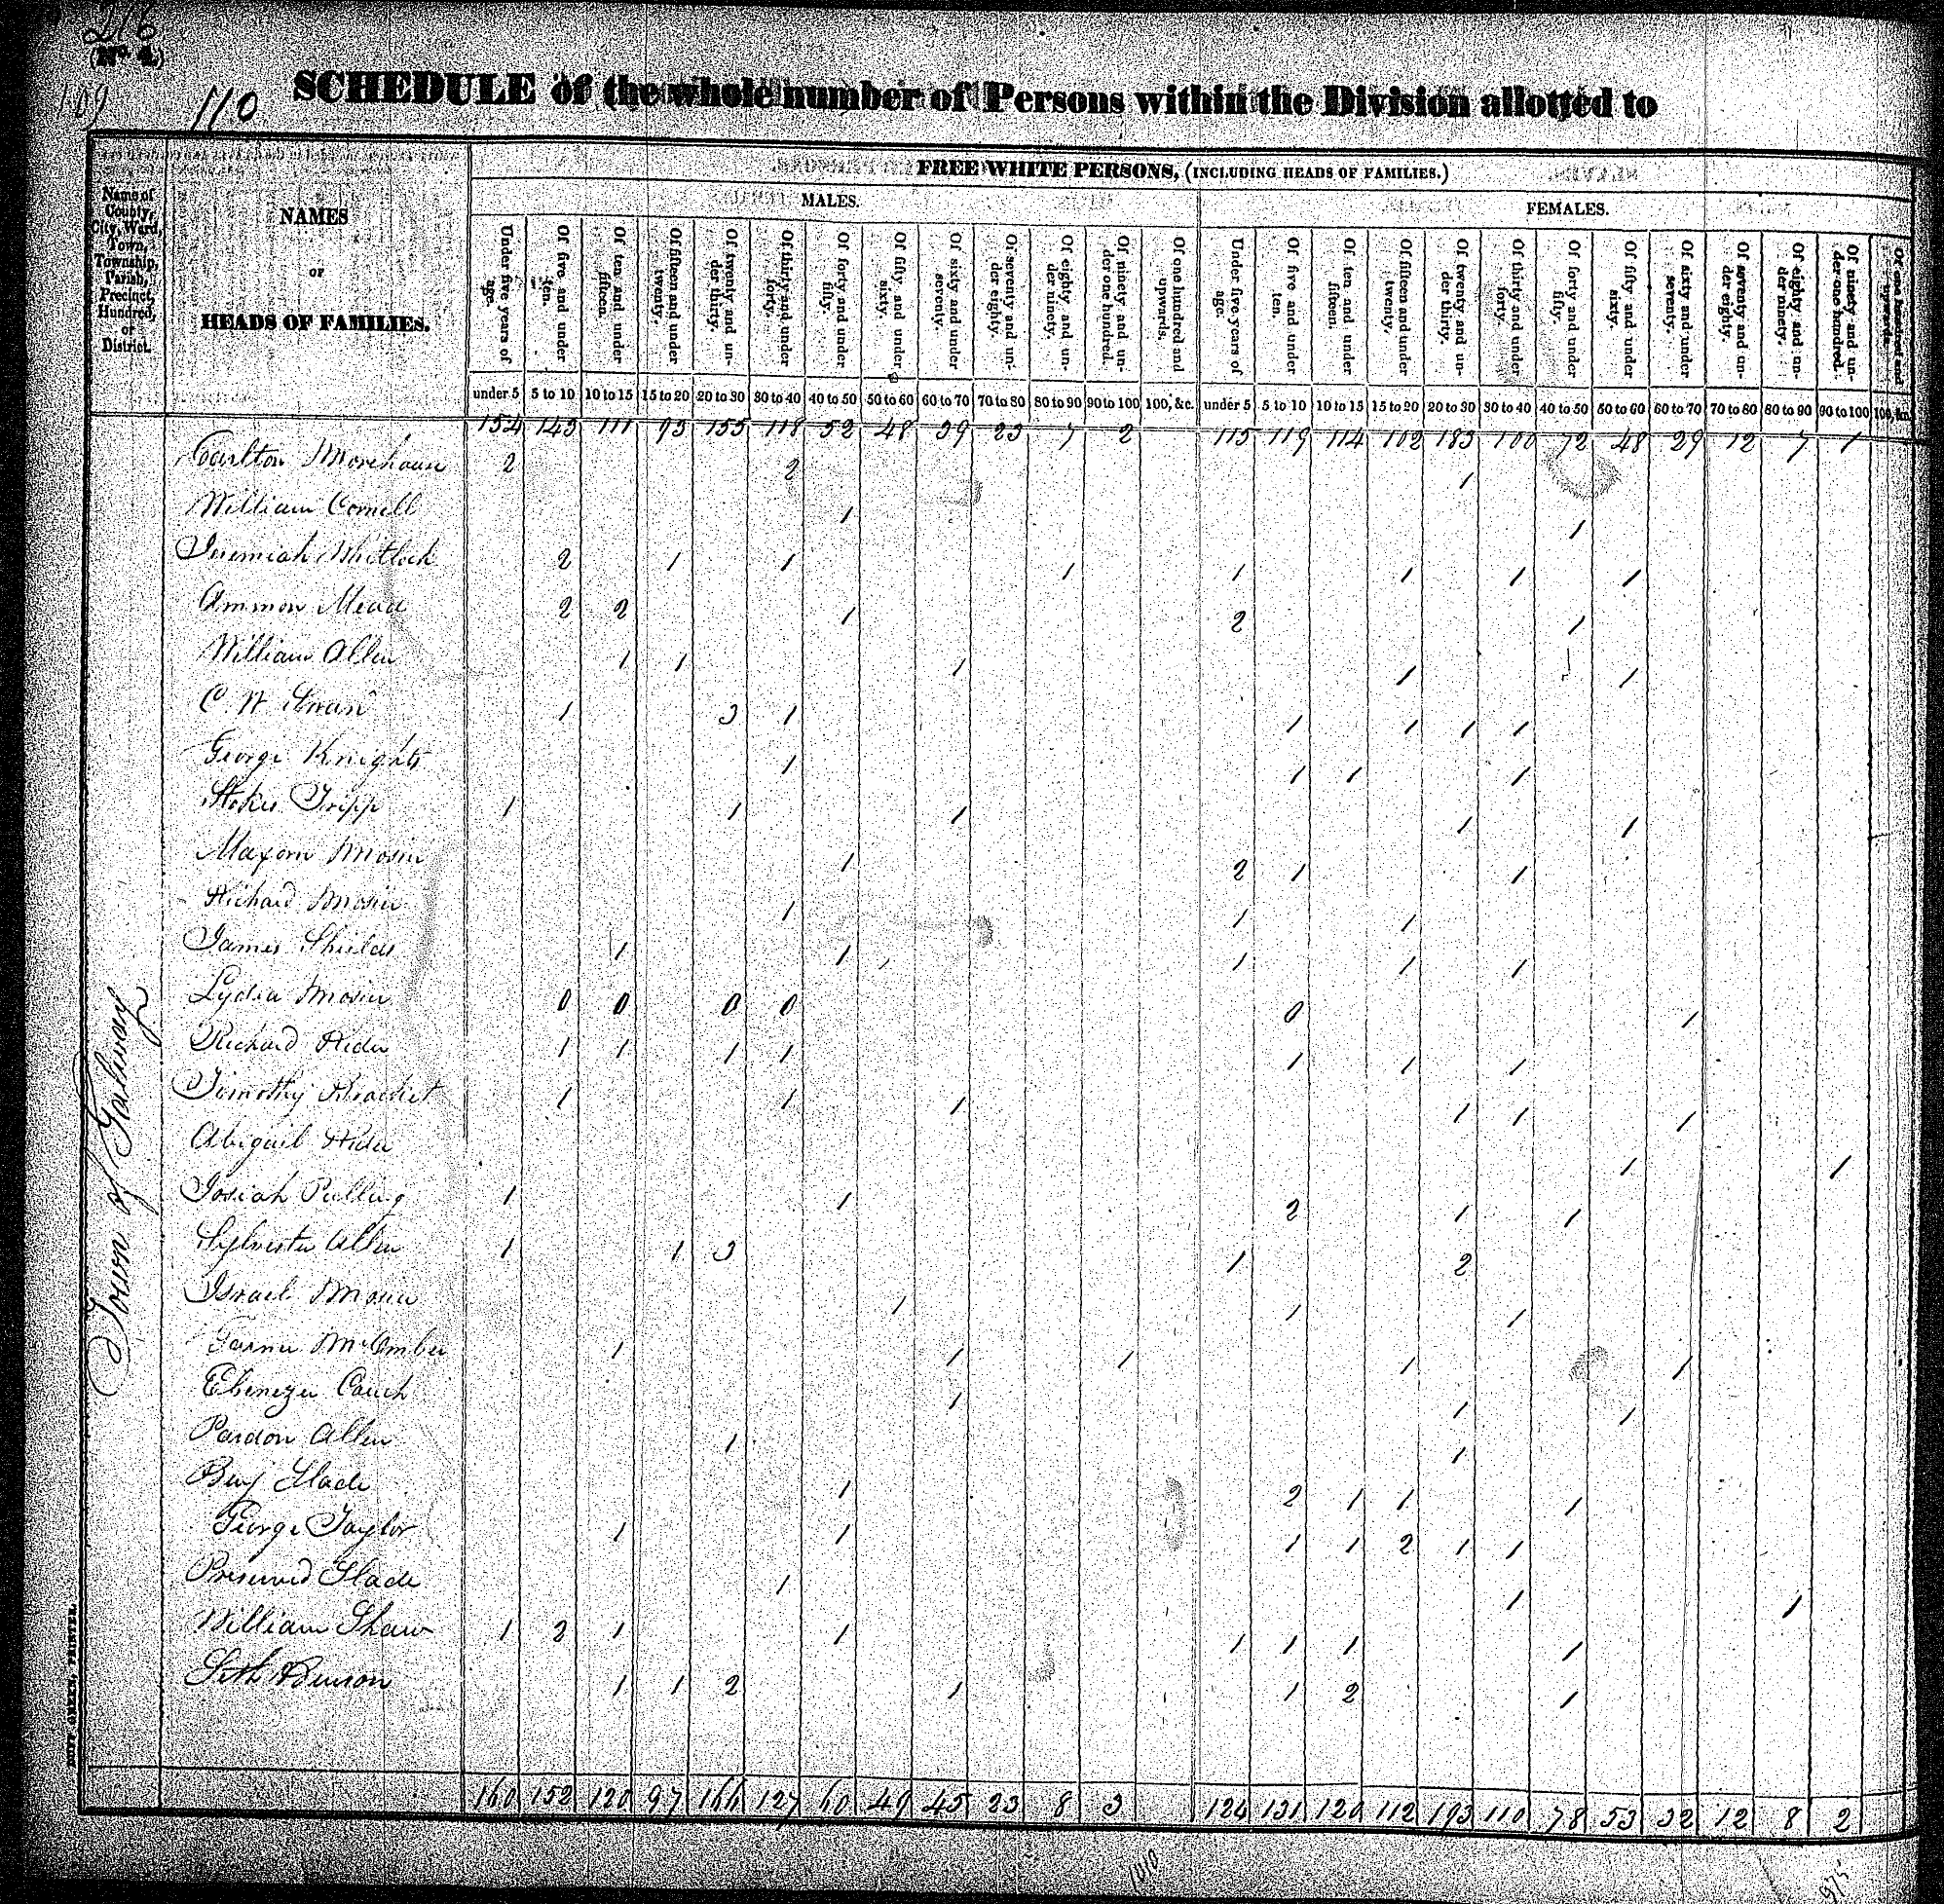 216
(No. 4.)
109 110 SCHEDULE of the whole number of Persons within the Division allotted to
Name of County, City, Ward, Town, Township, Parish, Precinct, Hundred, or District.
NAMES
OF
HEADS OF FAMILIES.
FREE WHITE PERSONS, (INCLUDING HEADS OF FAMILIES.)
MALES. FEMALES.
Under five years of age. Of five and under ten. Of ten and under fifteen. Of fifteen and under twenty. Of twenty and under thirty. Of thirty and under forty. Of forty and under fifty. Of fifty and under sixty. Of sixty and under seventy. Of seventy and under eighty. Of eighty and under ninety. Of ninety and under one hundred. Of one hundred and upwards. Under five years of age. Of five and under ten. Of ten and under fifteen. Of fifteen and under twenty. Of twenty and under thirty. Of thirty and under forty. Of forty and under fifty. Of fifty and under sixty. Of sixty and under seventy. Of seventy and under eighty. Of eighty and under ninety. Of ninety and under one hundred. Of one hundred and upwards.
under 5 5 to 10 10 to 15 15 to 20 20 to 30 30 to 40 40 to 50 50 to 60 60 to 70 70 to 80 80 to 90 90 to 100 100, &c. under 5 5 to 10 10 to 15 15 to 20 20 to 30 30 to 40 40 to 50 50 to 60 60 to 70 70 to 80 80 to 90 90 to 100 100, &c.
154 143 111 93 155 118 52 48 39 23 7 2 115 119 114 102 183 100 72 48 29 12 7 1
Carlton Morehouse 2 2 1
William Cornell 1 1
Jeremiah Whitlock 2 1 1 1 1 1 1 1
Ammon Mead 2 2 1 2 1
William Allen 1 1 1 1 1
C. W. Swan 1 3 1 1 1 1 1
George Knights 1 1 1 1
Stokes Tripp 1 1 1 1 1
Maxom Mosier 1 2 1 1
Richard Mosier 1 1 1
James Shields 1 1 1 1 1
Lydia Mosier 0 0 0 0 0 1
Richard Rider 1 1 1 1 1 1 1
Timothy Benedict 1 1 1 1 1 1
Abigail Rider 1 1
Josiah Pulling 1 1 2 1 1
Sylvester Allen 1 1 3 1 2
Israel Mosier 1 1 1
McOmber 1 1 1 1 1
Ebenezer Couch 1 1 1
Pardon Allen 1 1
Benj Slade 1 2 1 1 1
George Taylor 1 1 1 1 2 1 1
Preserved Slade 1 1 1
William Shaw 1 2 1 1 1 1 1 1
Seth Benson 1 1 2 1 1 2 1
Town of Galway
160 152 120 97 166 127 60 49 45 23 8 3 124 131 120 112 193 110 78 53 32 12 8 2
1010 975